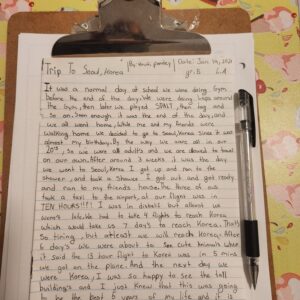 Trip To Seoul, Korea
By: Date: Jan 14, 2021
gr: 5 L.A
It was a normal day at school we were doing Gym
before the end of the day. We were doing laps around
the gym, then later we played SPALT, then tag and
so on. Soon enough, it was the end of the day, and
we all went home. While me and my friends were
walking home we decided to go to Seoul, Korea since it was
almost my birthday. By the way, we were all in our
20's so we were all adults and we are allowed to travel
on our own. After around 3 weeks it was the day
we went to Seoul, Korea I got up and ran to the
shower, and took a shower I got out and got ready
and ran to my friends house. The three of us
took a taxi to the airport, as our flight was in
TEN HOURS!!!! I was in disbelif but atleast we
weren't late. We had to take 4 flights to reach Korea,
which would take us 7 days to reach Korea. That's
so tiring, but atleast we will reach Korea. After
6 days we were about to see cute animals when
it said the 13 hour flight to Korea was in 5 mins
we got on the plane. And the next day we
were in Korea, I was so happy to see the tall
buildings and I just knew that this was going
to be the best days of my life and if it